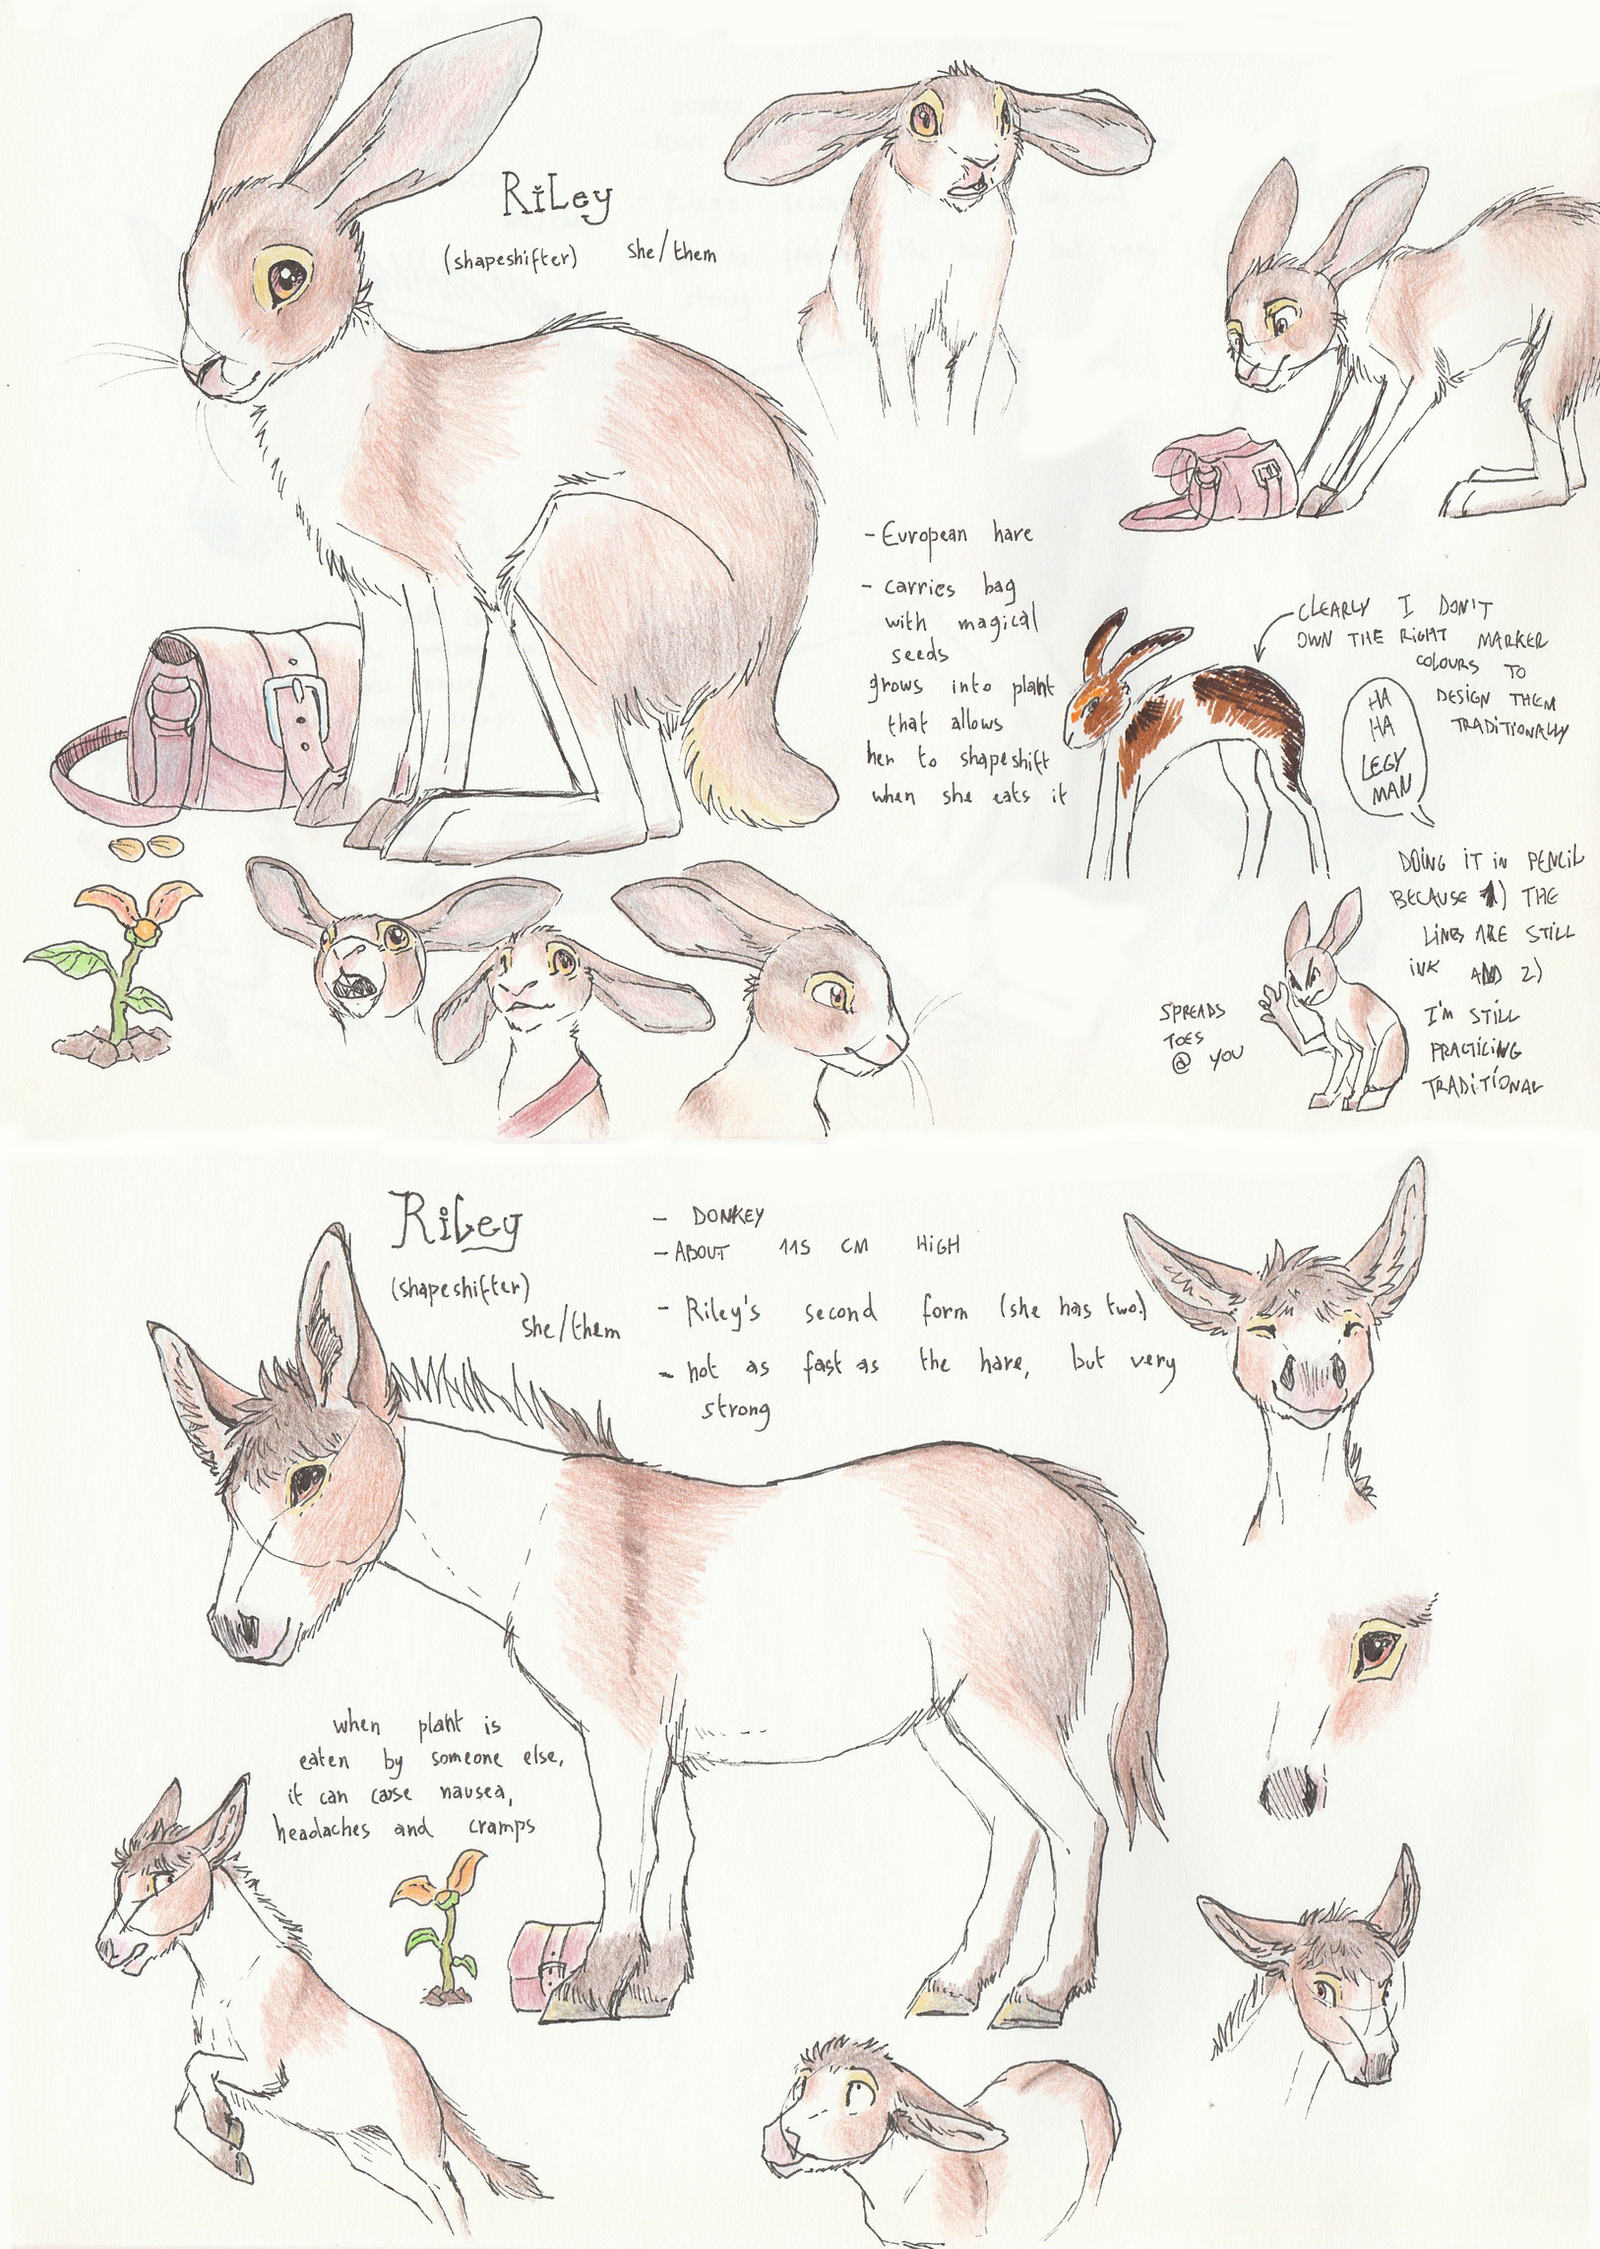 Riley
(shapeshifter) she/them
- European hare
- carries bag
with magical
seeds
grows into plant
that allows
her to shapeshift
when she eats it
CLEARLY I DON'T
OWN THE RIGHT MARKER
COLOURS TO
DESIGN THEM
TRADITIONALLY
HA
HA
LEGY
MAN
DOING IT IN PENCIL
BECAUSE 1) THE
LINES ARE STILL
INK AND 2)
I'M STILL
PRACTICING
TRADITIONAL
SPREADS
TOES
@ YOU
Riley
(shapeshifter)
she/them
- DONKEY
- ABOUT 115 CM HIGH
- Riley's second form (she has two.)
- not as fast as the hare, but very
strong
when plant is
eaten by someone else,
it can cause nausea,
headaches and cramps